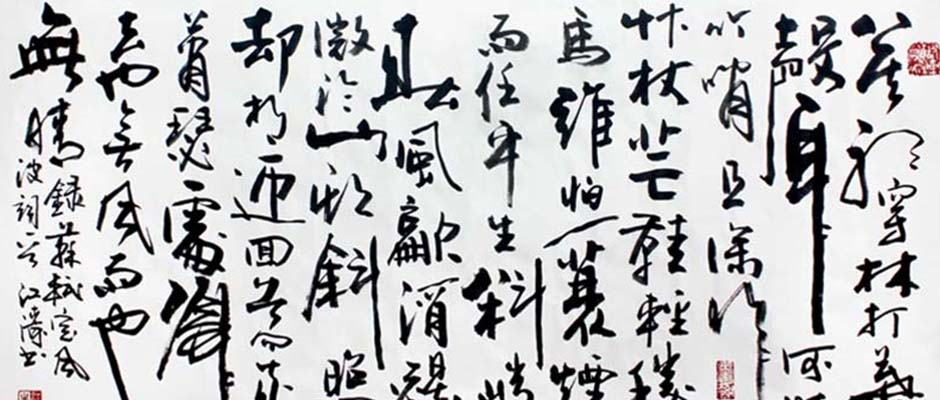 莫聽穿林打葉
聲何妨
吟嘯且徐行
竹杖芒鞋輕勝
馬誰怕一蓑煙
雨任平生料峭
春風吹酒醒
微冷山頭斜照
却相迎回首向来
蕭瑟處歸
去也無風雨也
無晴 錄蘇軾定風
波詞 江濤书